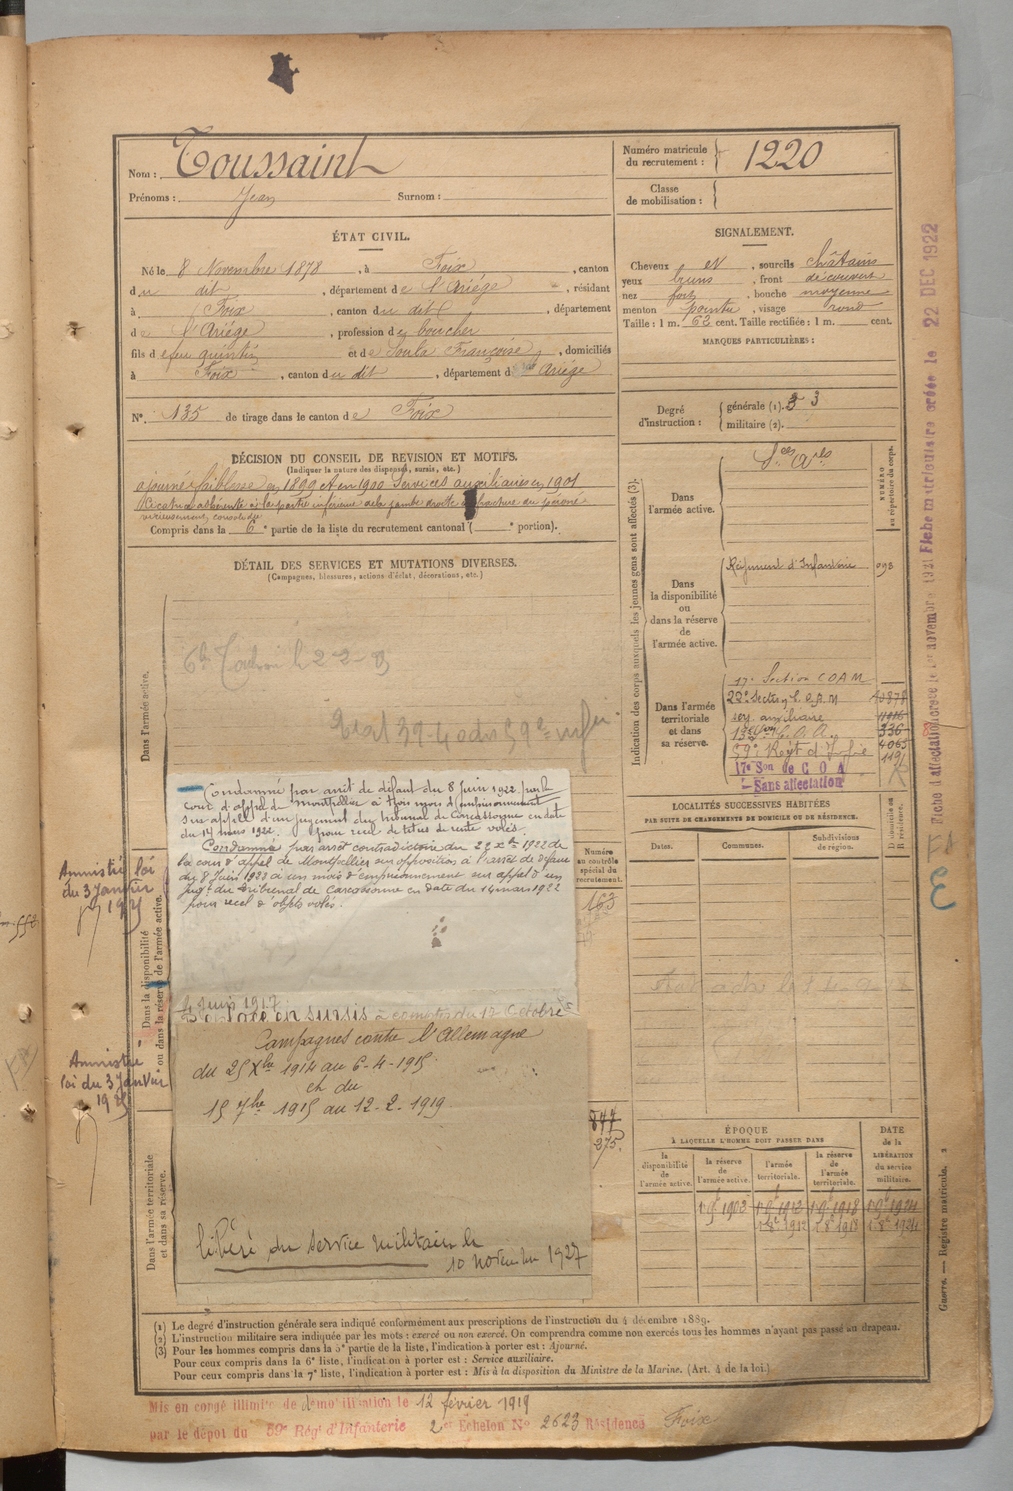 Nom : Toussaint
Prénoms : Jean Surnom :
Numéro matricule du recrutement : 1220
Classe de mobilisation :
ÉTAT CIVIL.
Né le 8 Novembre 1878, à Foix, canton
du dit, département de l'Ariége, résidant
à Foix, canton du dit, département
de l'Ariége, profession de boucher
fils de feu quintin et de Soula Françoise, domiciliés
à Foix, canton du dit, département d Ariége
N° 135 de tirage dans le canton de Foix
SIGNALEMENT.
Cheveux et, sourcils châtains
yeux bruns, front découvert
nez fort, bouche moyenne
menton pointu, visage rond
Taille : 1 m. 62 cent. Taille rectifiée : 1 m. cent.
MARQUES PARTICULIÈRES :
Degré d'instruction : générale (1). 3 3
militaire (2).
DÉCISION DU CONSEIL DE REVISION ET MOTIFS.
(Indiquer la nature des dispenses, sursis, etc.)
ajourné faiblesse en 1899 et en 1900 Services auxiliaires en 1901
Cicatrice adhérente à la partie inférieure de la jambe droite fracture du péroné
vicieusement consolidée
Compris dans la 6e partie de la liste du recrutement cantonal ( e portion).
DÉTAIL DES SERVICES ET MUTATIONS DIVERSES.
(Campagnes, blessures, actions d'éclat, décorations, etc.)
Dans l'armée active.
Condamné par arrêt de défaut du 8 juin 1922 par la
cour d'appel de Montpellier à trois mois d'emprisonnement
sur appel d'un jugement du tribunal de Carcassonne en date
du 14 mars 1922 pour recel de titres de rente volés.
Condamné par arrêt contradictoire du 29 Xbre 1922 de
la cour d'appel de Montpellier sur opposition à l'arrêt de défaut
du 8 Juin 1922 à un mois d'emprisonnement sur appel d'un
jugt du tribunal de Carcassonne en date du 14 mars 1922
pour recel d'objets volés.
Amnistié loi
du 3 Janvier
1925
Dans la disponibilité ou dans la réserve de l'armée active.
Juin 1917
en sursis à compter du 12 Octobre
Campagnes contre l'Allemagne
du 25 Xbre 1914 au 6-4-1915
et du
15 7bre 1915 au 12-2-1919
Amnistié
loi du 3 Janvier
1925
Dans l'armée territoriale et dans sa réserve.
libéré du service militaire le
10 novembre 1927
Numéro au contrôle spécial du recrutement.
163
847
275
Indication des corps auxquels les jeunes gens sont affectés (3).
NUMÉRO au répertoire du corps.
Dans l'armée active.
Sces Ares
Dans la disponibilité ou dans la réserve de l'armée active.
Régiment d'Infanterie 093
Dans l'armée territoriale et dans sa réserve.
17e Section COAM
sery. auxiliaire
59e Regt d'Infie
17e Son de C O A
Sans affectation
336
4065
LOCALITÉS SUCCESSIVES HABITÉES
PAR SUITE DE CHANGEMENTS DE DOMICILE OU DE RÉSIDENCE.
Dates. Communes. Subdivisions de région. D domicile ou R résidence.
ÉPOQUE
À LAQUELLE L'HOMME DOIT PASSER DANS
DATE de la LIBÉRATION du service militaire.
la disponibilité de l'armée active. la réserve de l'armée active. l'armée territoriale. la réserve de l'armée territoriale.
(1) Le degré d'instruction générale sera indiqué conformément aux prescriptions de l'instruction du 4 décembre 1889.
(2) L'instruction militaire sera indiquée par les mots : exercé ou non exercé. On comprendra comme non exercés tous les hommes n'ayant pas passé au drapeau.
(3) Pour les hommes compris dans la 5e partie de la liste, l'indication à porter est : Ajourné.
Pour ceux compris dans la 6e liste, l'indication à porter est : Service auxiliaire.
Pour ceux compris dans la 7e liste, l'indication à porter est : Mis à la disposition du Ministre de la Marine. (Art. 4 de la loi.)
Mis en congé illimité de démobilisation le 12 février 1919
par le dépôt du 59e Régt d'Infanterie 2e Échelon N° 2623 Résidence Foix
Guerre. — Registre matricule. 2
22 DEC 1922